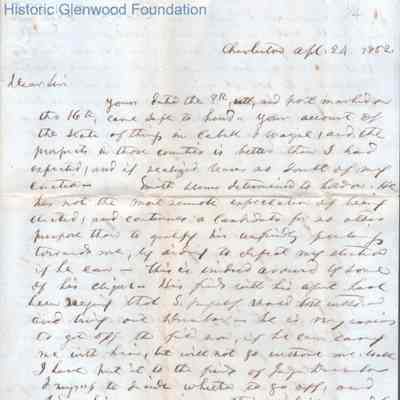 Historic Glenwood Foundation
Charleston Apl. 24. 1852
Dear Sir
Yours dated the 8th, and post marked on
the 16th, came safe to hand. Your account of
the state of things in Cabell & Wayne, and the
prospects in those counties is better than I had
expected, and if realized leaves no doubt of my
election. Smith seems determined to hold on. He
has not the most remote expectation of being
elected, and continues a candidate for no other
purpose than to gratify his unfriendly feelings
towards me, by aiding to defeat my election
if he can. this is indeed avowed by some
of his clique. His friends with his
been saying that I myself should both withdraw
and bring out he is, my
to get off the field now, if he can carry
me with him, but will not go without me.
I have put it to the friends of Judge
to decide whether to go off, and